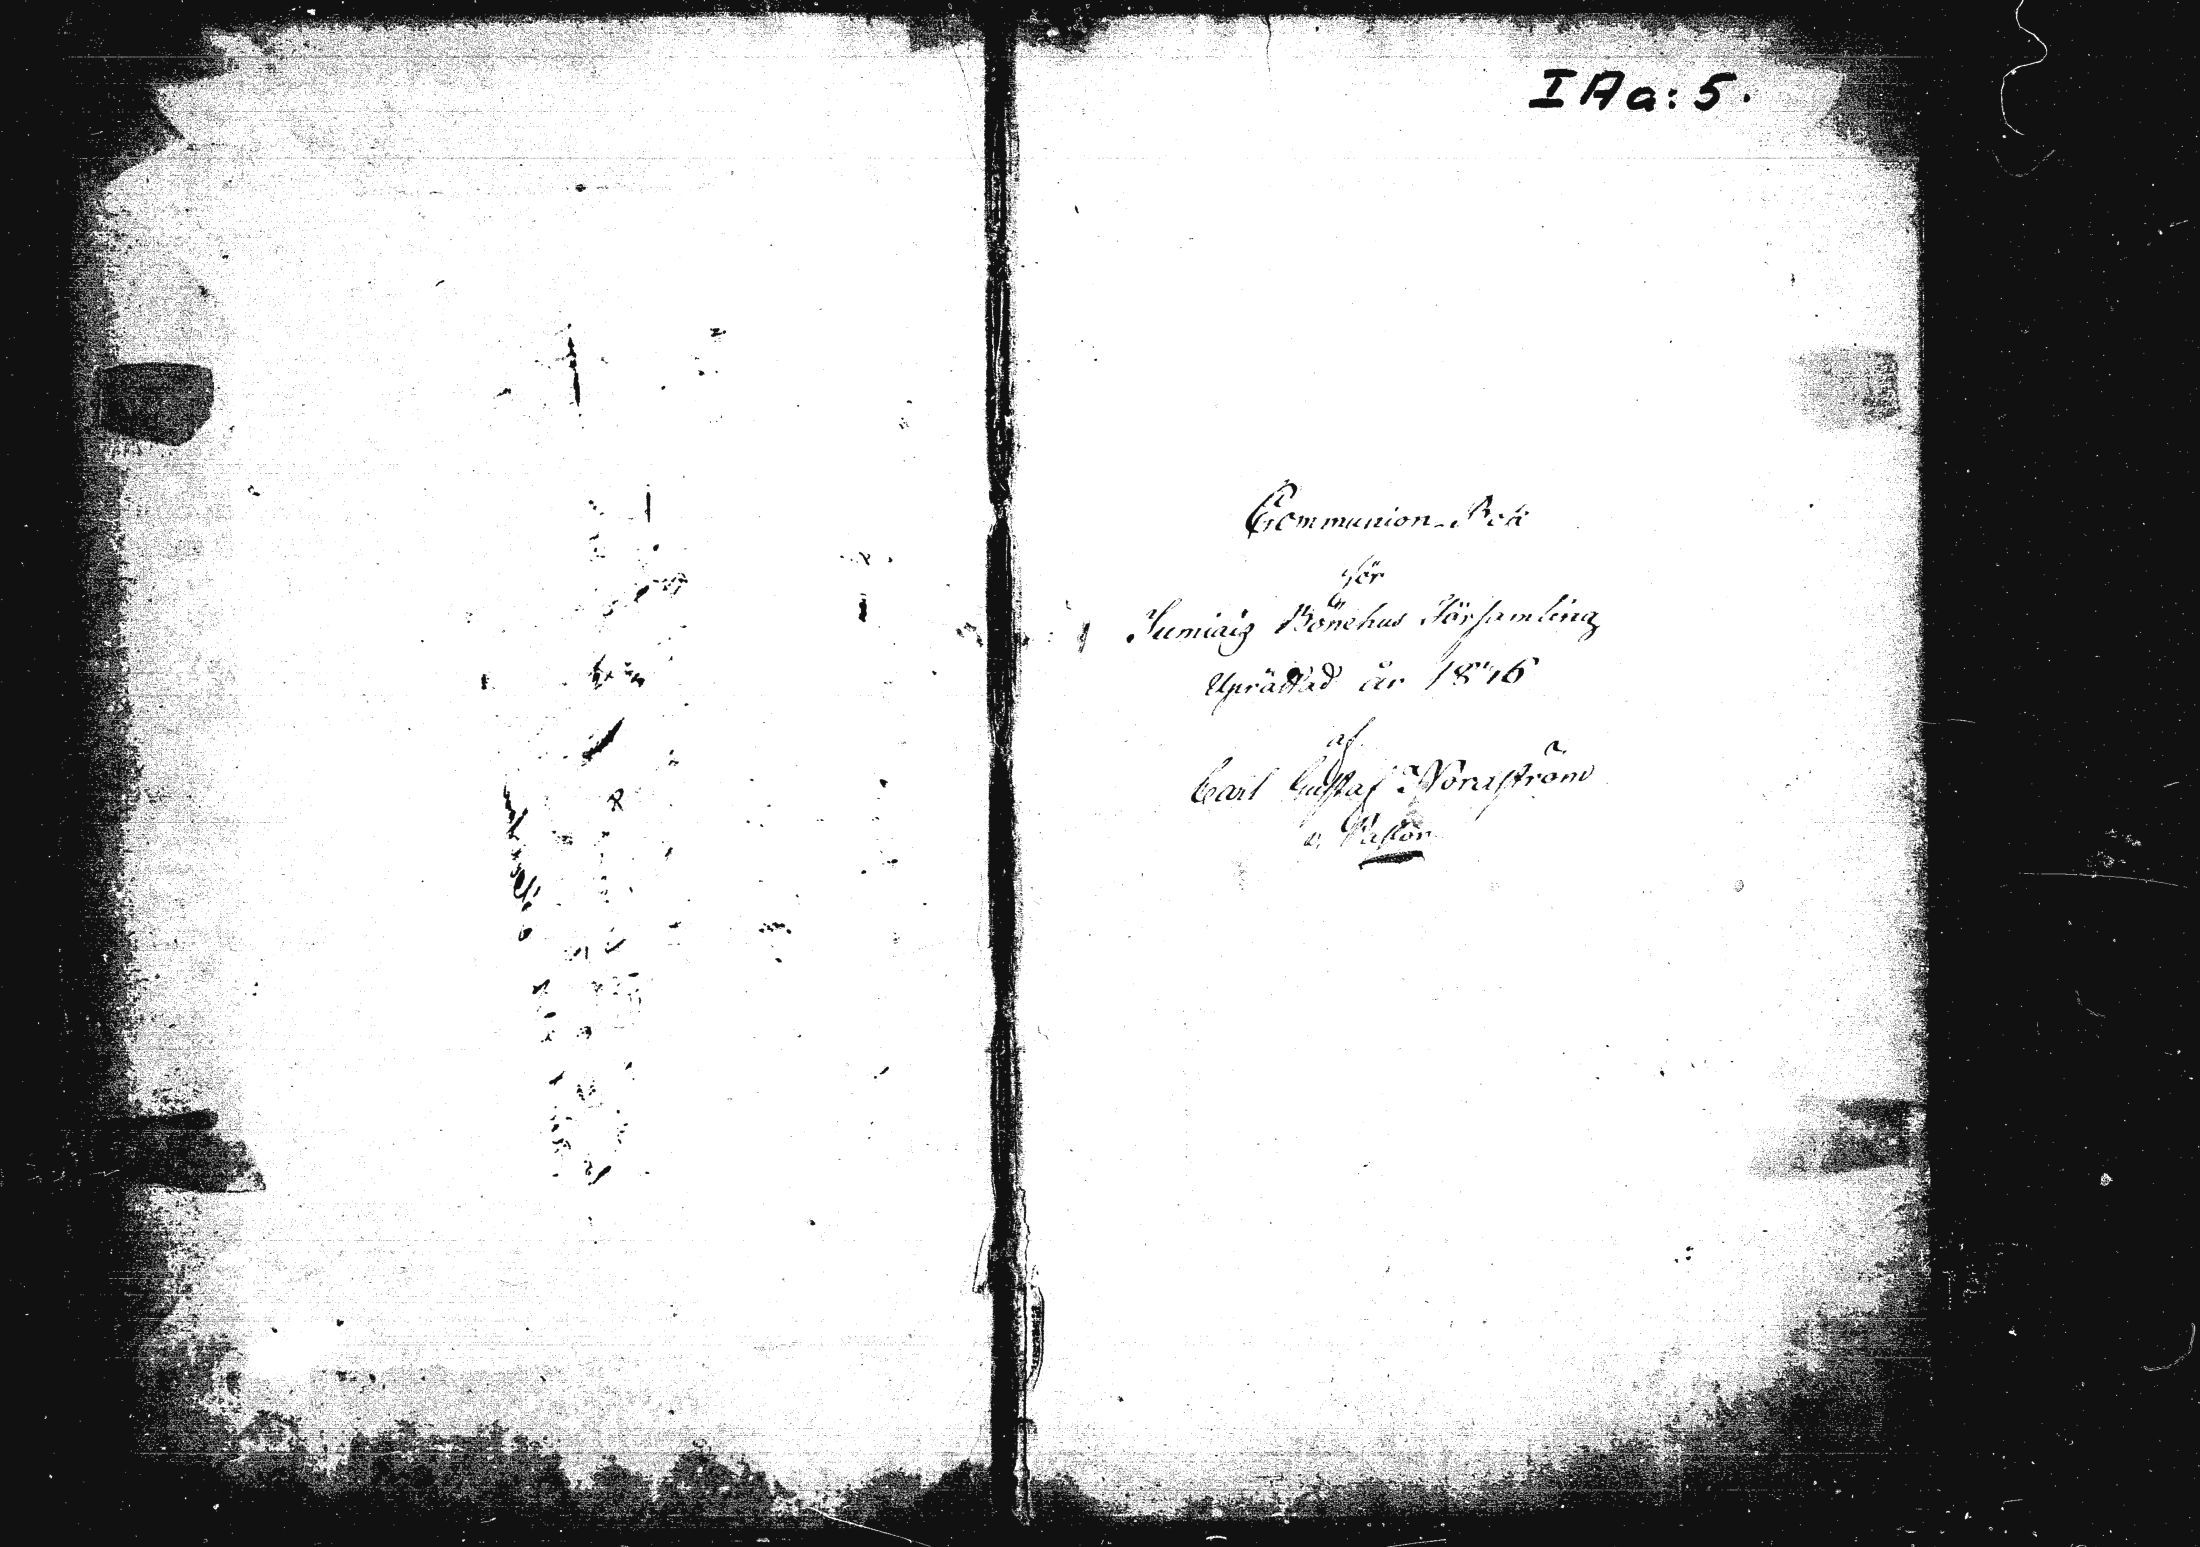 I Aa: 5.
Communion-Bok
för
Sumiais Bönehus Församling
Uprättad år 18
af
Carl Gustaf Nordström
v. Pastor